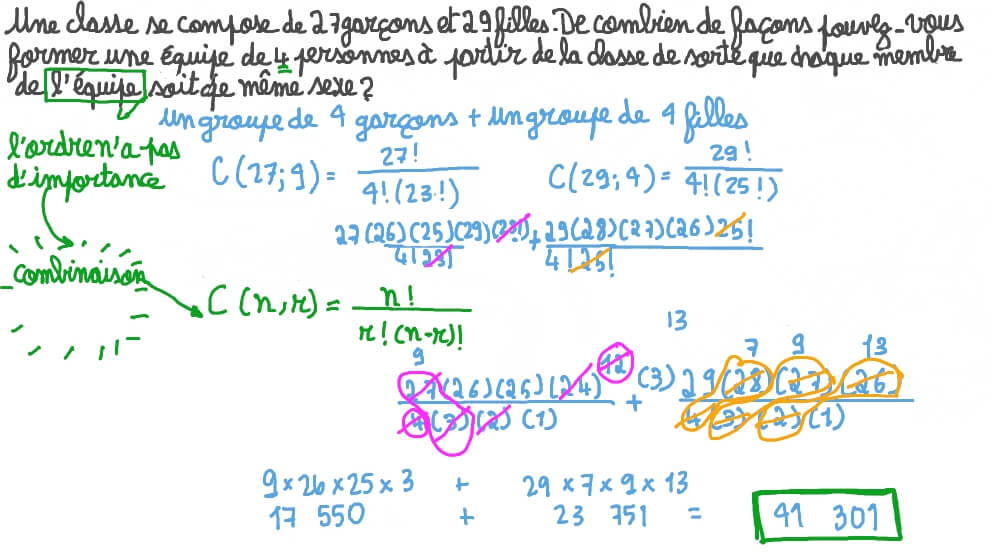 Une classe se compose de 27 garçons et 29 filles. De combien de façons pouvez-vous
former une équipe de 4 personnes à partir de la classe de sorte que chaque membre
de l'équipe soit de même sexe ?
un groupe de 4 garçons + un groupe de 4 filles
l'ordre n'a pas
d'importance
C(27;4) = 27! / 4!(23!)
C(29;4) = 29! / 4!(25!)
27(26)(25)(24)(23!) / 4!23! + 29(28)(27)(26)25! / 4!25!
combinaison
C(n,r) = n! / r!(n-r)!
13
9 12 7 9 13
27(26)(25)(24) / 4(3)(2)(1) + (3) 29(28)(27)(26) / 4(3)(2)(1)
9 × 26 × 25 × 3 + 29 × 7 × 9 × 13
17 550 + 23 751 = 41 301